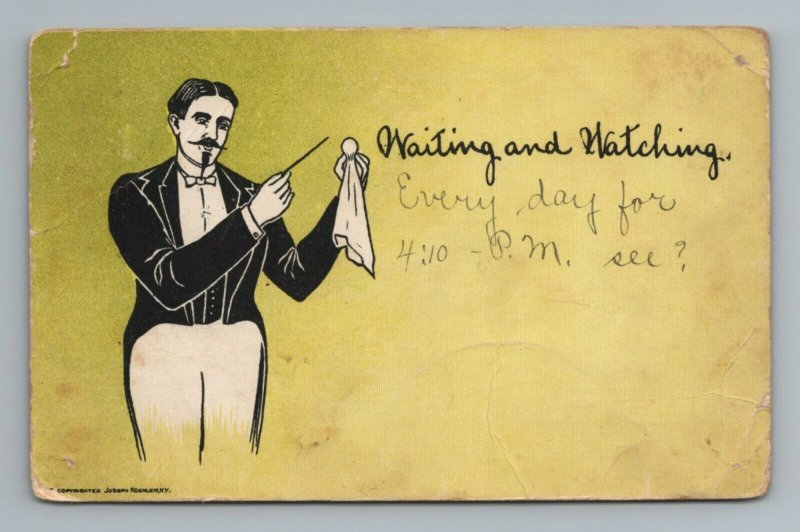 Waiting and Watching.
Every day for
4:10 - P.M. see?
COPYRIGHTED JOSEPH KOEHLER, N.Y.